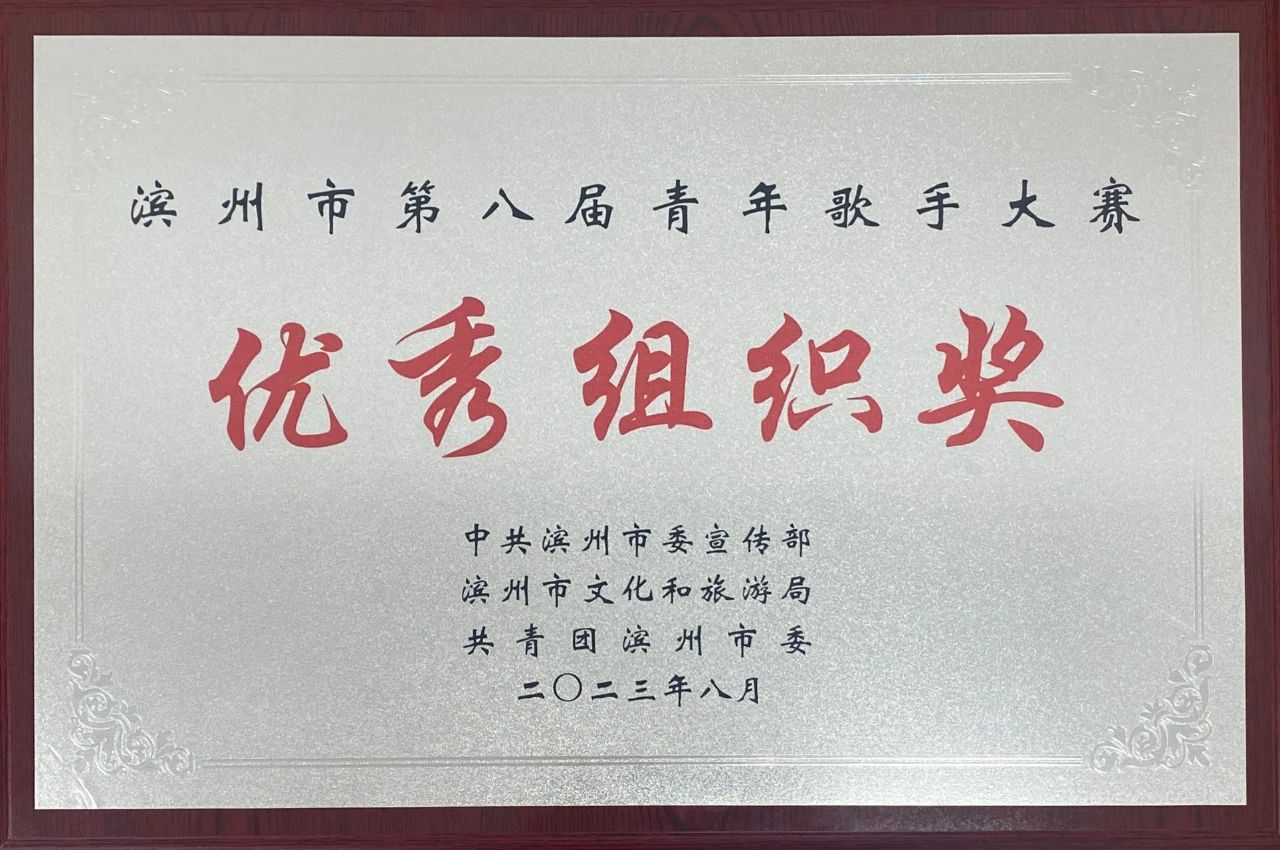 滨州市第八届青年歌手大赛
优秀组织奖
中共滨州市委宣传部
滨州市文化和旅游局
共青团滨州市委
二〇二三年八月